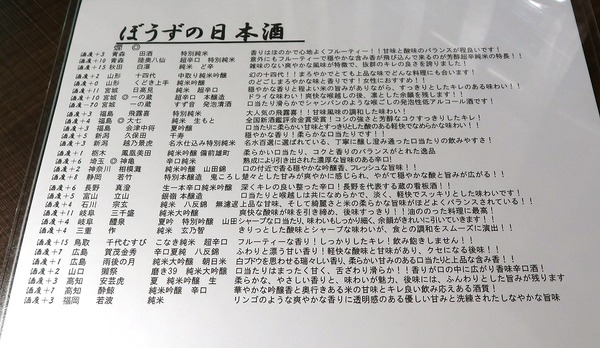 ぼうずの日本酒
酒度+3 青森 田酒 特別純米 香りはほのかで心地よくフルーティー！！甘味と酸味のバランスが程良いです！
酒度+10 青森 陸奥八仙 超辛口 特別純米 意外にもフルーティーで穏やかな含み香が飛び込んで来るのが芳醇超辛純米の特長！！
酒度+15 秋田 白瀑 純米 ど辛 雑味のない爽やかな風味が特徴で、抜群のキレの良さを誇ります！
酒度+2 山形 十四代 中取り純米吟醸 幻の十四代！！まろやかでとても上品な味でどんな料理にも合います！
酒度+0 山形 くどき上手 純米吟醸 のどごしまろやかな味と香りです！女性におすすめ！！
酒度+11 宮城 日高見 純米 超辛口 穏やかな香りと程よい米の旨みがありながら、すっきりとしたキレのある味わい！！
酒度+10 宮城 ◎一の蔵 超辛口 本醸造 ドライな味わい！爽快な喉越しの後、凛とした余韻を残します！
酒度-70 宮城 一の蔵 すず音 発泡清酒 口当たり滑らかでシャンパンのような喉ごしの発泡性低アルコール酒です！
酒度+3 福島 飛露喜 特別純米 大人気の飛露喜！！甘味風味の調和した味わい！
酒度+4 福島 ◎大七 純米 生もと 全国新酒鑑評会金賞受賞！コシの強さと芳醇なコクすっきりしたキレ！
酒度+3 福島 会津中将 夏吟醸 口当たりに柔らかい甘味とすっきりとした酸のある軽快でなめらかな味わい！！
酒度+5 新潟 久保田 千寿 穏やかな香り！柔らかな口当たりです！
酒度+3 新潟 越乃景虎 名水仕込み特別純米 名水百選に選ばれている、丁寧に醸し澄み通った口当たりの飲みやすさ！
酒度+1 栃木 鳳凰美田 純米吟醸 備前雄町 柔らかい口当たり、コクと香りのバランスがとれた逸品
酒度+6 埼玉 ◎神亀 辛口純米 熟成により引き出された濃厚な旨味のある辛口！
酒度+2 神奈川 相模灘 純米吟醸 山田錦 口の付近で香る穏やかな吟醸香、フレッシュな旨味！！
酒度+8 静岡 若竹 特別本醸造 鬼ころし 楚々とした甘みが爽やかに感じられ、やがて穏やかな酸と旨みが広がる！！
酒度+6 長野 真澄 生一本辛口純米吟醸 深くキレの良い整った辛口！長野を代表する蔵の看板酒！！
酒度+5 富山 立山 銀嶺 本醸造 口当たりと喉越しは共になめらかで、淡く、軽快でスッキリとした味わいです！
酒度+4 石川 宗玄 純米 八反錦 無濾過 上品な甘み、そして綺麗さと米の柔らかな旨味がほどよくバランスされている！！
酒度+11 岐阜 三千盛 純米大吟醸 爽快な酸味が味を引き締め、後味すっきり！！油ののった料理に最高！
酒度+4 岐阜 醴泉 夏吟 特別吟醸 山田 シャープな口当たり、味わいもしっかり細く、余韻がきれいに引いていきます！
酒度+4 三重 作 純米 玄乃智 きりっとした酸味とシャープな味わいが、食との調和をスムーズに演出！！
酒度+15 鳥取 千代むすび こなき純米 超辛口 フルーティーな香り！しっかりしたキレ！飲み飽きしません！
酒度+7 広島 賀茂金秀 辛口夏純 八反錦 ふわりと漂う甘い香り！軽快な酸味と甘味があり、クセになる後味！！
酒度+7 広島 雨後の月 純米大吟醸 朝日米 白ブドウを思わせる瑞々しい香り、柔らかい甘みのある口当たりと上品な含み香！！
酒度+2 山口 獺祭 磨き39 純米大吟醸 口当たりはまったく甘く、舌ざわり滑らか！！香りが口の中に広がり香味辛口酒！
酒度+3 高知 安芸虎 夏 純米吟醸 生 柔らかな、やさしい香りと、味わいが魅力、後味には、ふんわりとした旨みが残ります
酒度+7 高知 酔鯨 純米吟醸 辛口 華やかな吟醸香と奥行きある米の甘味とキレ良い飲み応えある酒質！
酒度+3 福岡 若波 純米 リンゴのような爽やかな香りに透明感のある優しい甘みと洗練されたしなやかな旨味